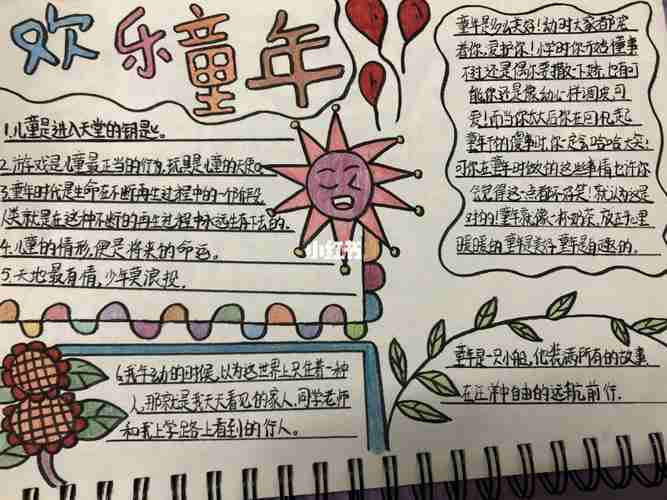 欢乐童年
1.儿童是进入天堂的钥匙。
2.游戏是儿童最正当的行为,玩具是儿童的天使。
3.童年时代是生命在不断再生过程中的一个阶段,
人类就是在这种不断的再生过程中永远生存下去的.
4.儿童的情形,便是将来的命运。
5.天地最有情,少年莫浪投.
6.我年幼的时候,以为这世界上只住着一种
人,那就是我天天看见的家人.同学老师
和我上学路上看到的行人。
童年是多么美好!幼时大家都宠
着你,爱护你!小学时你开始懂事
不过还是偶尔要撒一下娇,也有可
能你还是像幼儿一样调皮可
爱!而当你长大后你在回忆起
童年干的傻事时,你定会哈哈大笑!
可你在童年时做的这些事情也许你
觉得这一点都不好笑!就认为这是
对的!童年就像一杯奶茶,放在手里
暖暖的.童年是美好,童年是有趣的.
童年是一只小船,他装满所有的故事
在江洋中自由的远航前行.
小红书